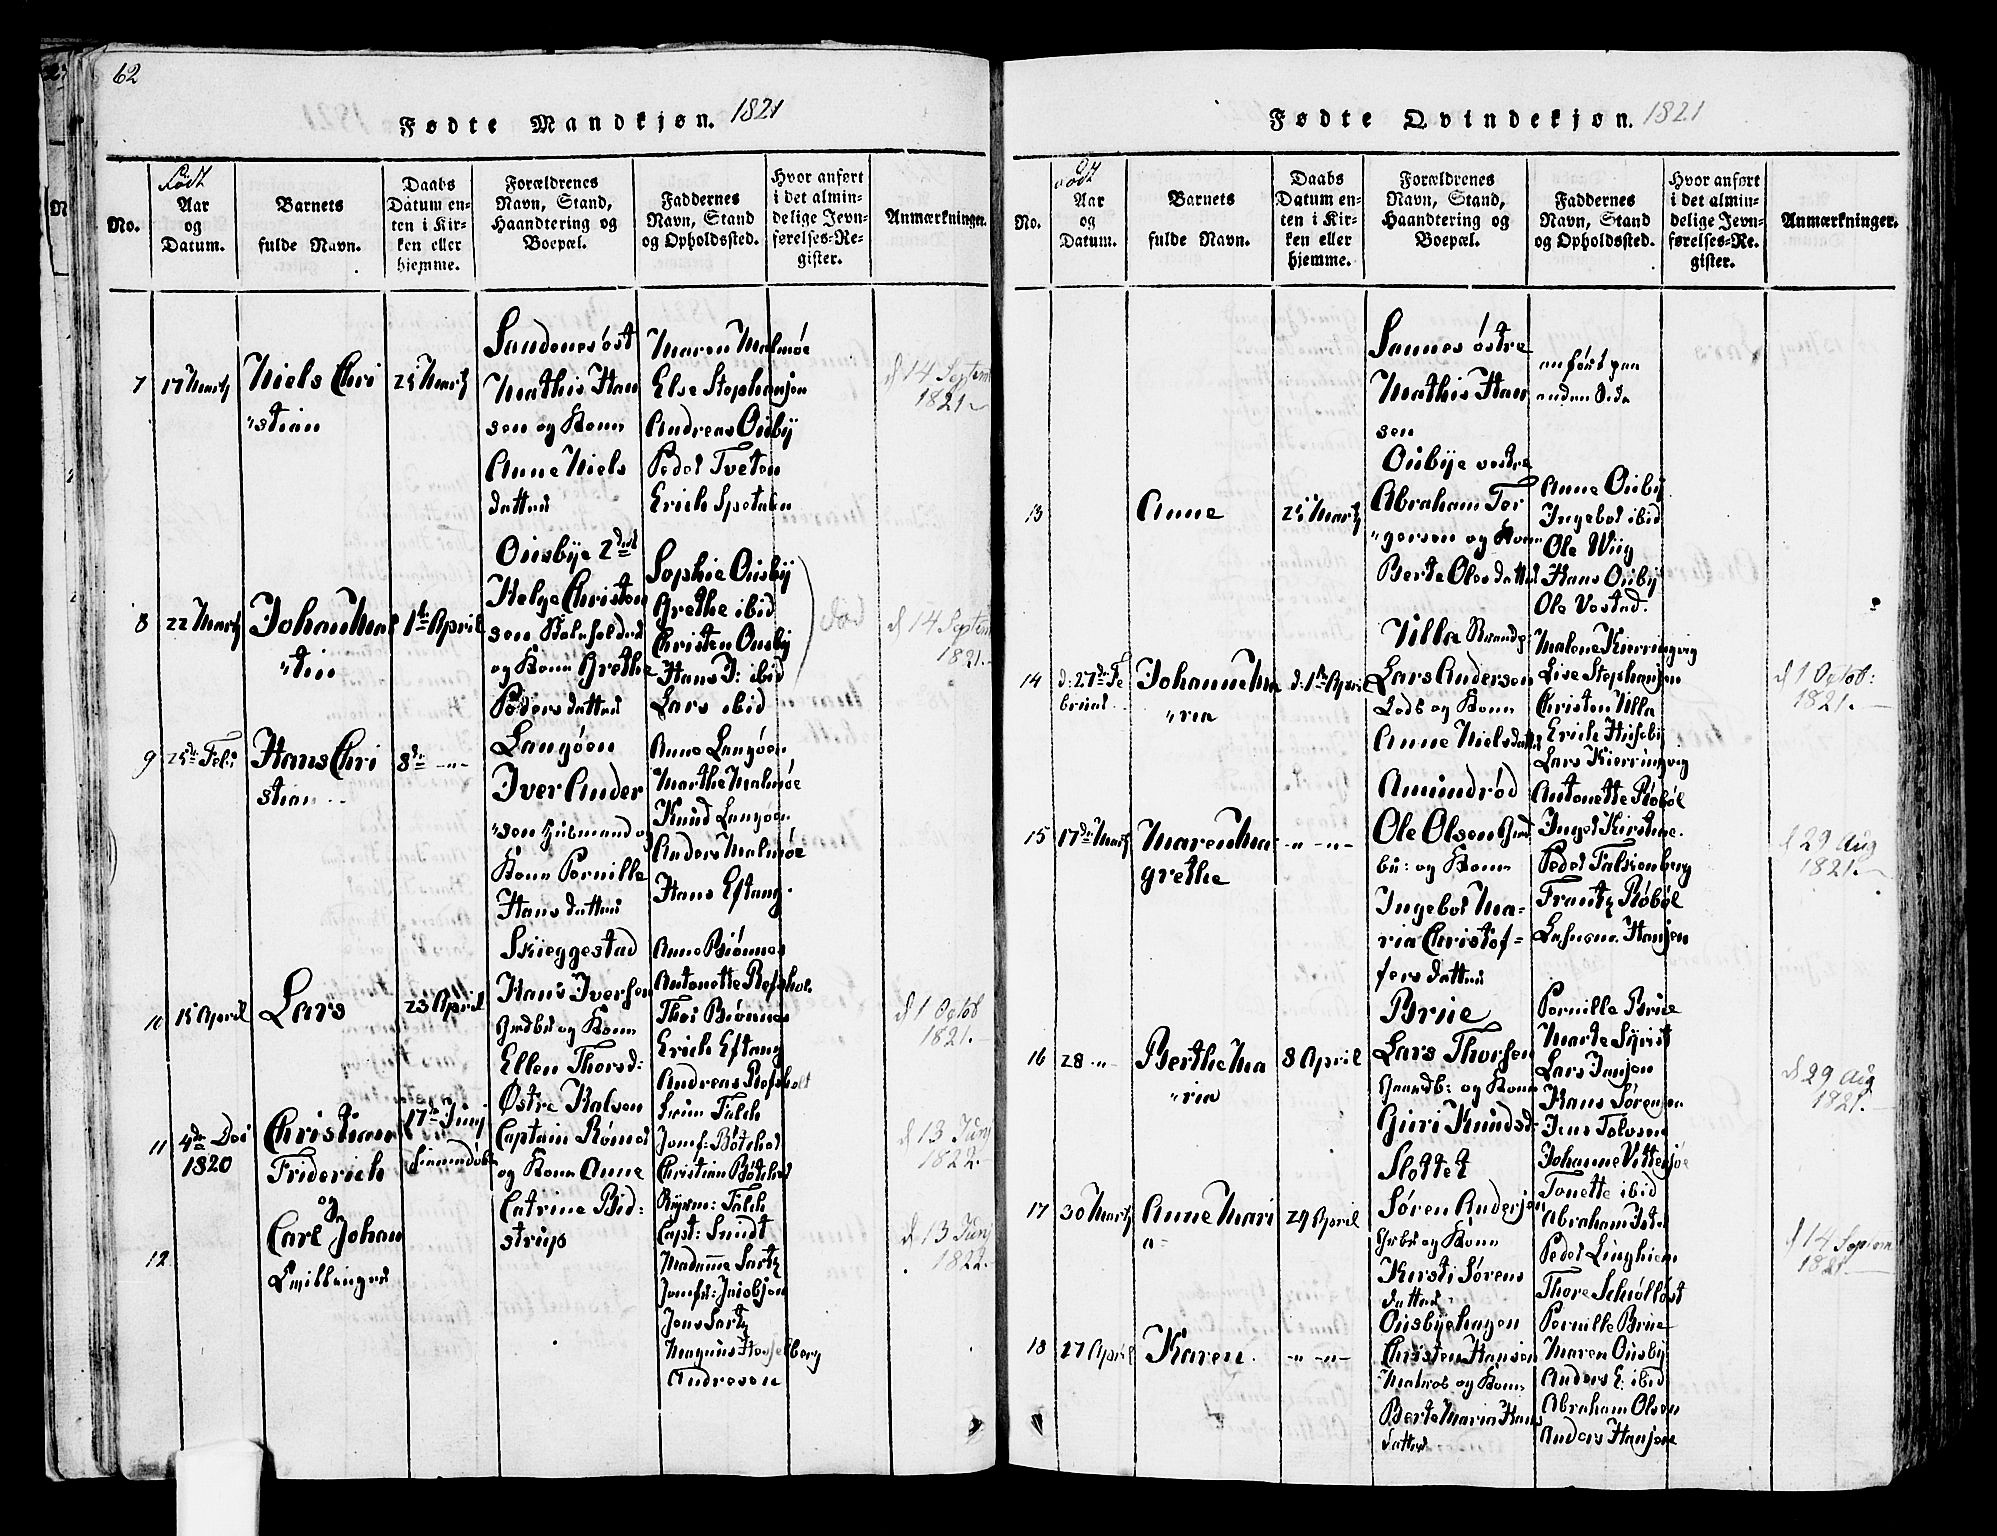 62
Fødte Mandkjøn. 1821
No.
Født
Aar
og
Datum.
Barnets
fulde Navn.
Daabs
Datum en-
ten i Kir-
ken eller
hjemme.
Forældrenes
Navn, Stand,
Haandtering og
Boepæl.
Faddernes
Navn, Stand
og Opholdssted.
Hvor anført
i det almin-
delige Jevn-
førelses-Re-
gister.
Anmærkninger.
7
17 Martz
Niels Chri
"stian
25 Martz
Sandenes øst
Mathis Han
sen og Kone
Anne Niels
datter
Maren Malmøe
Else Stephansen
Andreas Ousby
Peder Tveten
Erich Spetalen
d 14 Septem
1821
8
22 Martz
Johan Mar
"tin
1te April
Ousbye
Helge Christen
sen
og Kone Grethe
Peders datter
Sophie Ousby
Grethe ibid
Christen Ousby
Hans J: ibid
Lars ibid
død
d 14 Septem
1821.
9
25de Feb:
Hans Chri
stian
8de -"-
Langøen
Iver Ander
"sen Huusmand og
Kone Pernille
Hans datter
Anne Langøen
Marthe Malmøe
Knud Langøen
Anders Malmøe
Hans Eftang
10
15 April
Lars
23 April
Skieggestad
Hans Iversen
Grdbr og Kone
Ellen Thorsd:
Anne Biønnes
Antonette Refsholt
Thor Biønnes
Erich Eftang
Andreas Refsholt
d 1 Octob
1821.
11
4de Dec
1820
Christian
Friderich
og
17de Junj
Østre Halsen
Captain Rømer
og Kone Anne
Catrine Bid-
strup
Falch
Jomf: Bøtcher
Christian Bøtcher
Falch
Capt: Sundt
Madamme Sartz
Jomfr: Jacobsen
Jens Sartz
Magnus Hesselberg
Andresen
d 13 Junj
1822.
12
Carl Johan
Tvillinger
d 13 Junj
1822.
Fødte Qvindekjøn. 1821
No.
Født
Aar
og
Datum.
Barnets
fulde Navn.
Daabs
Datum en-
ten i Kir-
ken eller
hjemme.
Forældrenes
Navn, Stand,
Haandtering og
Boepæl.
Faddernes
Navn, Stand
og Opholdssted.
Hvor anført
i det almin-
delige Jevn-
førelses-Re-
gister.
Anmærkninger.
Sannes østre
Mathis Han
sen
anført paa
anden Side
13
Anne
25 Martz
Ousbye vestre
Abraham Tor
"gersen og Kone
Berte Olesdatter
Anne Ousby
Ingebor ibid
Ole Wiig
Hans Ousby
Ole Vestad.
14
d: 27de Fe
bruar
Johanne Ma
"ria
d: 1te April
Villa
Lars Andersen
Lods og Kone
Anne Nielsdatter
Malene Kierringvig
Lise Stephansen
Christen Villa
Erich Huseby
Lars Kierringvig
d 1 Octob:
1821.
15
17de Martz
Maren Ma-
grethe
-"- -"-
Amundrød
Ole Olsen Grd
br: og Kone
Ingebor Ma-
ria Christof-
fers datter
Antonette Røbøl
Inger Kirstine
Peder Falkenberg
Frantz Røbøl
Hansen
d 29 Aug
1821.
16
28 -"-
Berthe Ma
"ria
8 April
Brue
Lars Thorsen
Gaardb: og Kone
Guri Knudsd
Pernille Brue
Marte
Lars Jensen
Hans Sørensen
Jens Tolvsen
d 29 Aug
1821.
17
30 Martz
Anne Mari
a-
29 April
Slottet
Søren Andersen
Grbr og Kone
Kirsti Sørens
datter
Johanne Vittersøe
Tonette ibid
Abraham
Peder Linghiem
Thore Schøllost
d 14 Septem
1821
18
27 April
Karen
-"- -"-
Ousbyehagen
Christen Hansen
Matros og Kone
Berte Maria Hans
datter
Pernille Brue
Maren Ousby
Anders E: ibid
Abraham Olsen
Anders Hansen